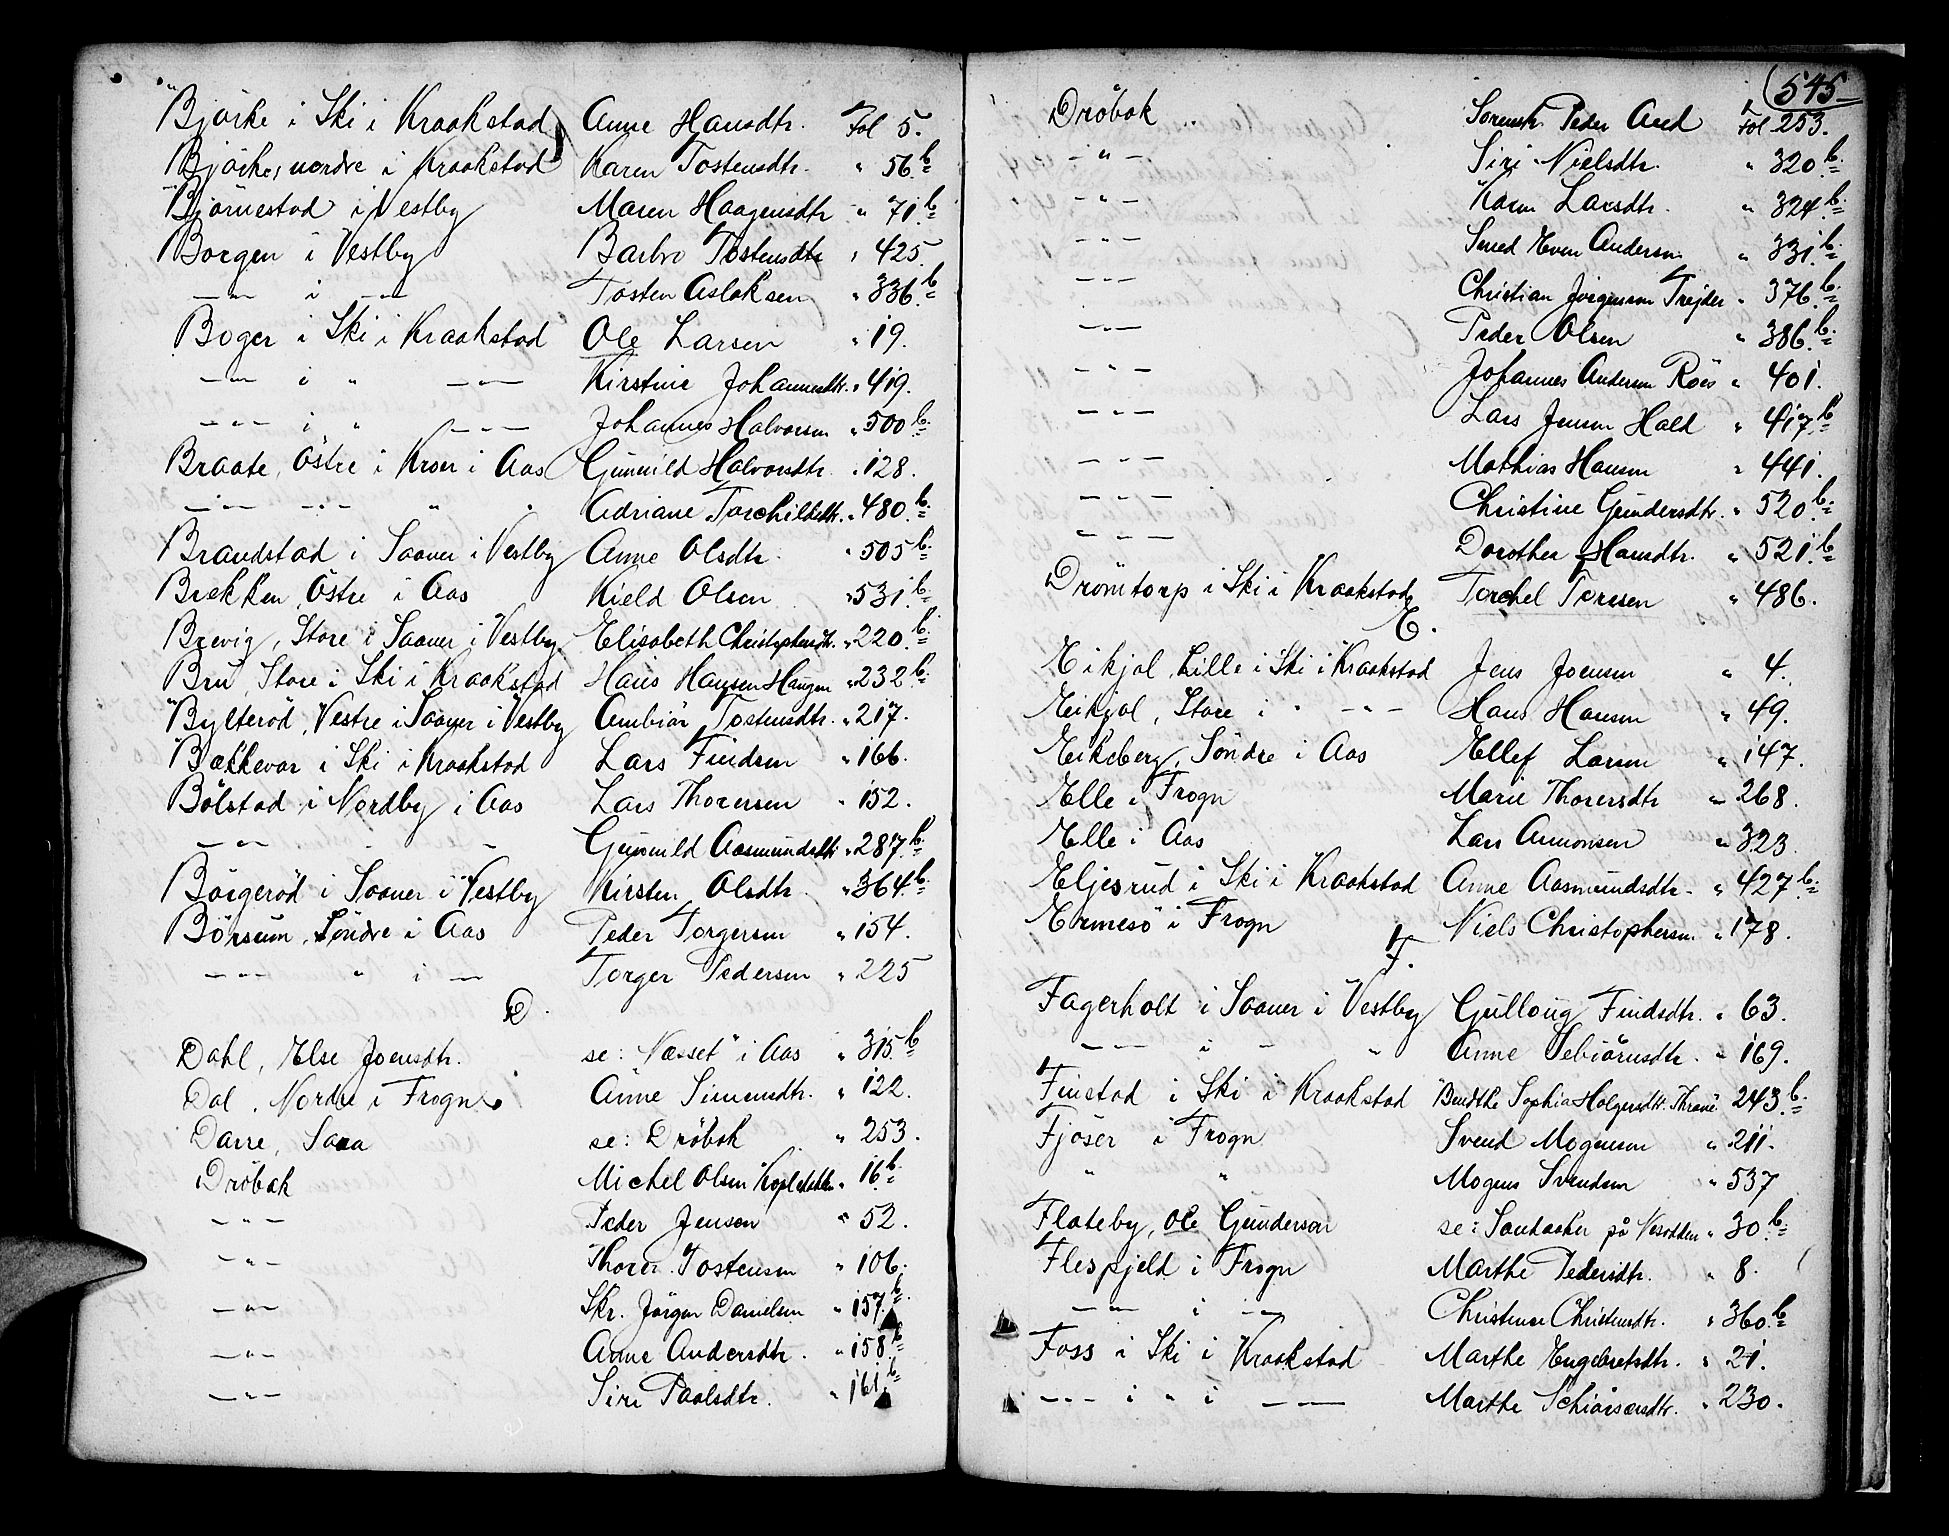 Björke i Ski i Kraakstad Anne Hansdtr. Fol 5.
Björke, nordre i Kraakstad Karen Tostensdtr. " 56 b.
Björnestad i Vestby Maren Haagensdtr " 71 b.
Borgen i Vestby Barbro Tostensdtr " 425.
— " — i — " — Tosten Aslaksen " 336 b.
Boger i Ski i Kraakstad Ole Larsen " 19.
— " — i " — " — Kirstine Johannesdtr. " 419.
— " — i " — " — Johannes Halvorsen " 500 b.
Braate, Östre i Kroer i Aas Gunnild Halvorsdtr. " 128.
— " — — " — " " Adriane Torchildsdtr. " 480 b.
Brandstad i Saaner i Vestby Anne Olsdtr. " 505 b.
Brækken Östre i Aas Kield Olsen " 531 b.
Brevig, Store i Saaner i Vestby Elisabeth Christophersdtr. " 220 b.
Bru, Store i Ski i Kraakstad Hans Hansen Haugen " 232 b.
Bylteröd, Vestre i Saaner i Vestby Ambiör Tostensdtr. " 217.
Bækkevar i Ski i Kraakstad Lars Findsen " 166.
Bölstad i Nordby i Aas Lars Thorersen " 152.
— " — " — Gunnild Aasmundsdtr " 287 b.
Börgeröd i Saaner i Vestby Kirsten Olsdtr. " 364 b.
Börsum, Söndre i Aas Peder Torgersen " 154.
— " — " i — Torger Pedersen " 225
D.
Dahl, Else Joensdtr. se: "Næsset" i Aas " 315 b
Dal, Nordre i Frogn Anne Simensdtr. " 122.
Darre, Sara se: Dröbak " 253.
Dröbak Michel Olsen " 16 b.
— " — Peder Jensen " 52.
— " — Thorer Tostensen " 106.
— " — Skr. Jörgen Danielsen " 157 b.
— " — Anne Andersdtr. " 158 b
— " — Siri Paalsdtr. " 161 b
545
Dröbak Sorenskr. Peder And Fol 253.
— " — Siri Nielsdtr. " 320 b.
— " — Karen Larsdtr. " 324 b.
— " — Smed Even Andersen " 331 b.
— " — Christian Jörgensen Trejder " 376 b.
— " — Peder Olsen " 386 b.
— " — Johannes Andersen Röes " 401.
— " — Lars Jensen Hald " 417 b
— " — Mathias Hansen " 441.
— " — Christine Gundersdtr. " 520 b.
— " — Dorothea Hansdtr. " 521 b
Drömtorp i Ski i Kraakstad Torchel Toresen " 486.
E.
Eikjol, Lille i Ski i Kraakstad Jens Joensen " 4.
Eikjol, Store i " — " — Hans Hansen " 49.
Eikeberg, Söndre i Aas Ellef Larsen " 147.
Elle i Frogn Marie Thorersdtr " 268.
Elle i Aas Lars Amonsen " 323.
Eljesrud i Ski i Kraakstad Anne Aasmundsdtr. " 427 b.
Ermesö i Frogn Niels Christophersen. " 178.
F.
Fagerholt i Saaner i Vestby Gulloug Findsdtr. " 63.
— " — i — " Anne Sebiörnsdtr. " 169.
Finstad i Ski i Kraakstad Bendthe Sophia Holgersdtr. Thrane 243 b.
Fjöser i Frogn Svend Mogensen " 211.
" " Mogens Svendsen " 537
Flateby, Ole Gundersen se: Sandaker på Nesodden " 30 b.
Flespjeld i Frogn Marthe Pedersdtr. " 8.
— " — i — " — Christense Christensdtr. " 360 b.
Foss i Ski i Kraakstad Marthe Engebretsdtr. " 21.
— " — i " i — — Marthe " 230.